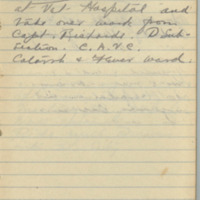 at Vet Hospital and
take over work from
Capt. Richards. D Sub-
section. C. A. V. C.
Catarrh & Fever ward.